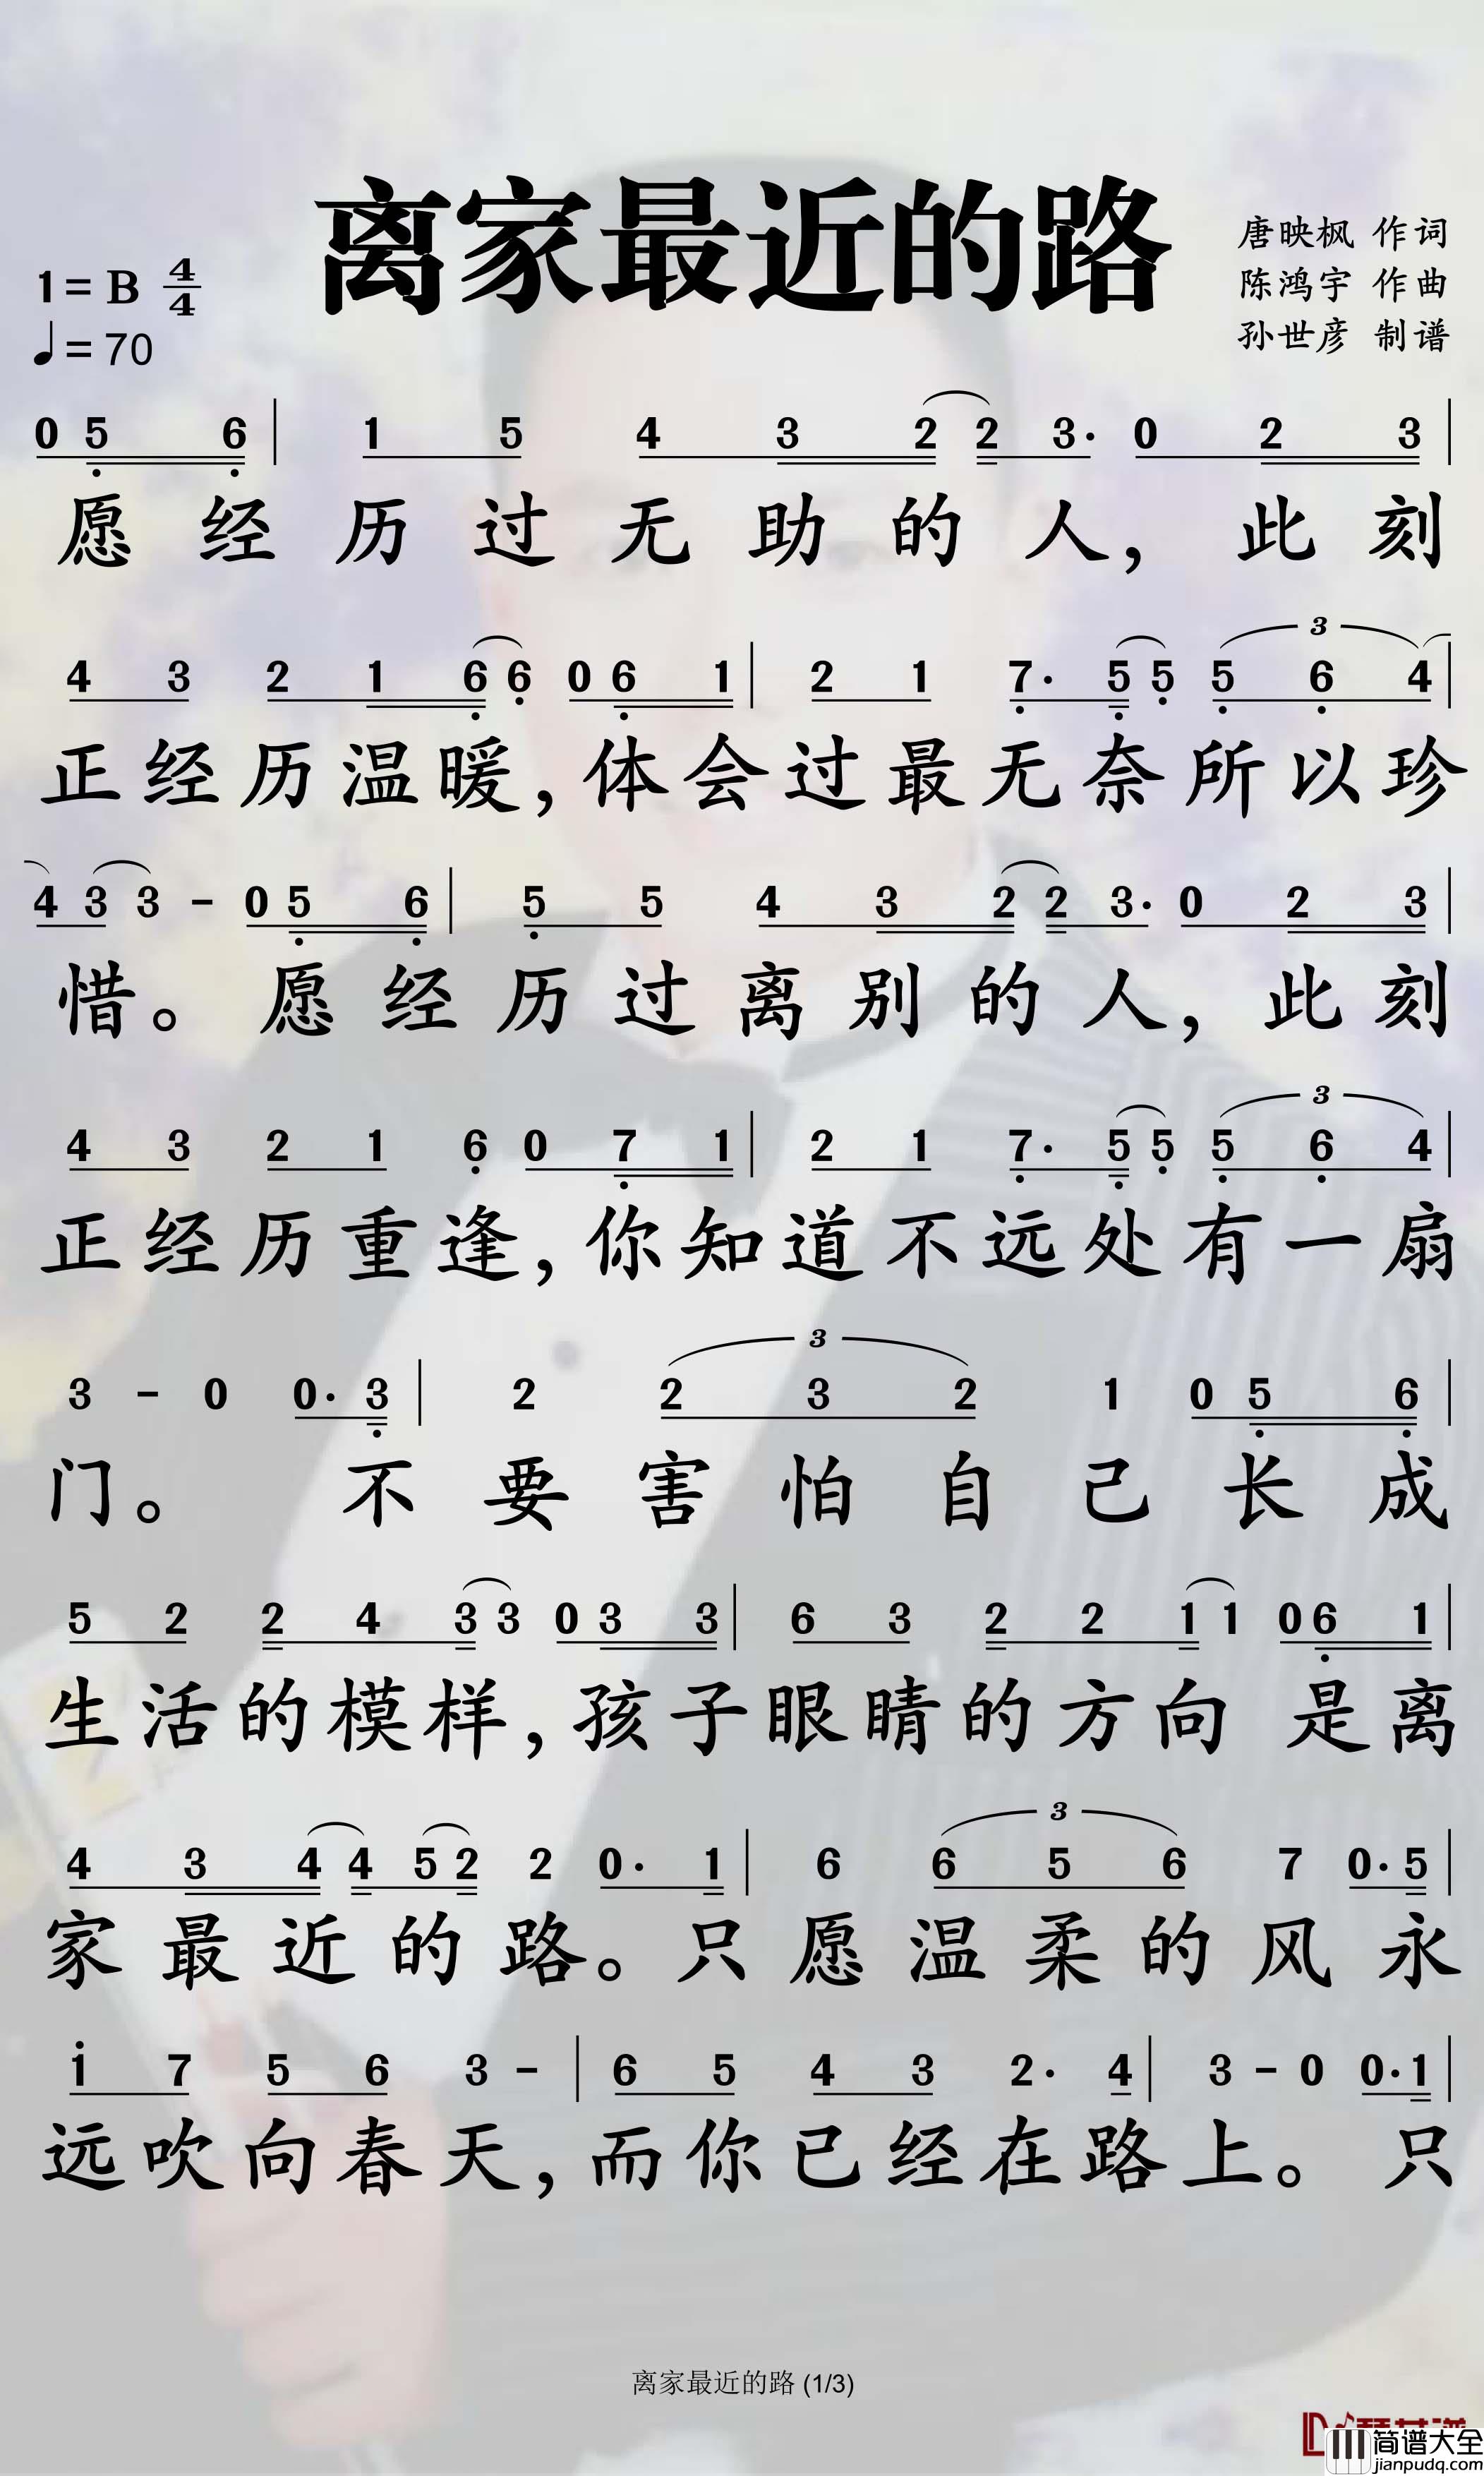 离家最近的路
唐映枫 作词
陈鸿宇 作曲
孙世彦 制谱
1=B 4/4
♩=70
0 5 6 | 1 5 4 3 2 2 3· 0 2 3 |
愿经历过无助的人，此刻
3
4 3 2 1 6 6 0 6 1 | 2 1 7· 5 5 5 6 4 |
正经历温暖，体会过最无奈所以珍
4 3 3 - 0 5 6 | 5 5 4 3 2 2 3· 0 2 3 |
惜。愿经历过离别的人，此刻
3
4 3 2 1 6 0 7 1 | 2 1 7· 5 5 5 6 4 |
正经历重逢，你知道不远处有一扇
3
3 - 0 0· 3 | 2 2 3 2 1 0 5 6 |
门。不要害怕自己长成
5 2 2 4 3 3 0 3 3 | 6 3 2 2 1 1 0 6 1 |
生活的模样，孩子眼睛的方向 是离
3
4 3 4 4 5 2 2 0· 1 | 6 6 5 6 7 0· 5 |
家最近的路。只愿温柔的风永
1 7 5 6 3 - | 6 5 4 3 2· 4 | 3 - 0 0· 1 |
远吹向春天，而你已经在路上。只
离家最近的路 (1/3)
简谱大全
jianpudq.com